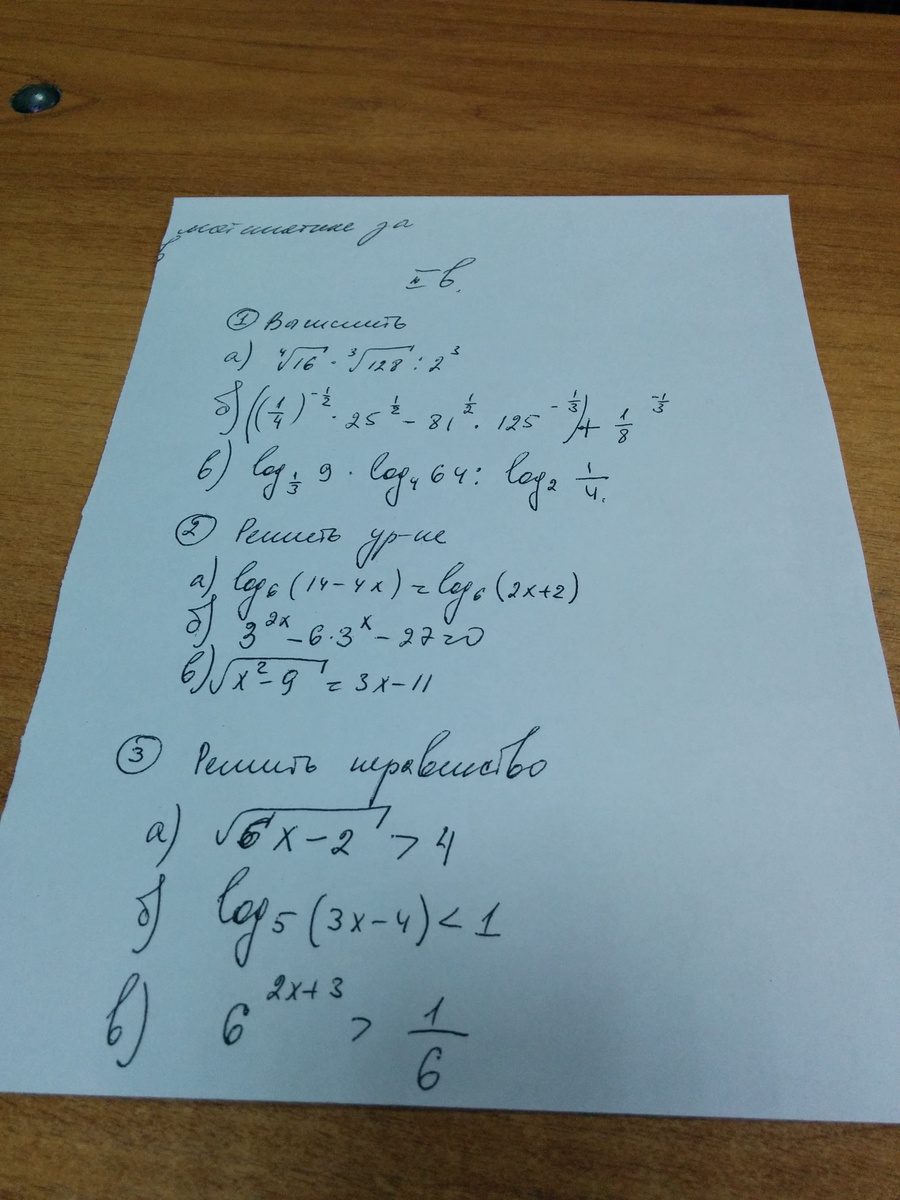 математике за
II в.
① Вычислить
а) ⁴√16 · ³√128 : 2³
б) ((1/4)^(-1/2) · 25^(1/2) - 81^(1/2) · 125^(-1/3)) + 1/8^(-1/3)
в) log_(1/3) 9 · log₄ 64 : log₂ 1/4.
② Решить ур-ие
а) log₆(14-4x) = log₆(2x+2)
б) 3^(2x) - 6·3^x - 27=0
в) √(x²-9) = 3x-11
③ Решить неравенство
а) √(6x-2) > 4
б) log₅(3x-4) < 1
в) 6^(2x+3) > 1/6